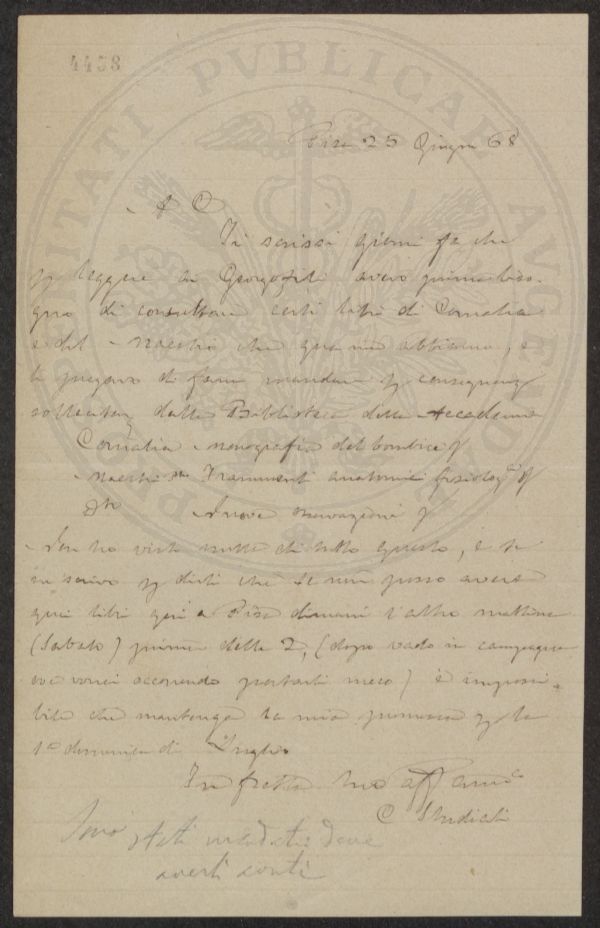 4458
Pisa 25 Giugno 68
A. C.
Ti scrissi giorni fa che
p leggere ai Georgofili avevo prima biso-
gno di consultare certi libri di Cornalia
e del Maestri che qua non abbiamo, e
ti pregavo di farmi mandare p conseguenza
dalla Biblioteca della Accademia
Cornalia monografia del bombice
Maestri Frammenti anatomici fisiologici
Do Nuove osservazioni
Non ho visto nulla di tutto questo, e te
ne scrivo p dirti che se non posso avere
quei libri qui a Pisa dimani l'altro mattina
(Sabato) prima delle 2, (dopo vado in campagna
ove vorrei portarli meco) è impossi-
bile che mantenga la mia promessa p la
1a domenica di Luglio
In fretta tuo aff amico
C Studiati
PVBLICAE VTILITATI